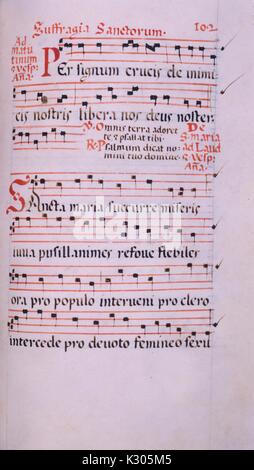 Suffragia Sanctorum. 102
Ad
Ma
tuti
num
& Vesp
Aña.
Per signum crucis de inimi
cis nostris libera nos deus noster
V. Omnis terra adoret
te & psallat tibi.
R. Psalmum dicat no
mini tuo domine.
De
S. Maria
ad Laud
& Vesp
Aña.
Sancta maria succurre miseris
iuva pusillanimes refove flebiles
ora pro populo interveni pro clero
intercede pro devoto femineo sexu
alamy
Image ID: K305M5
www.alamy.com